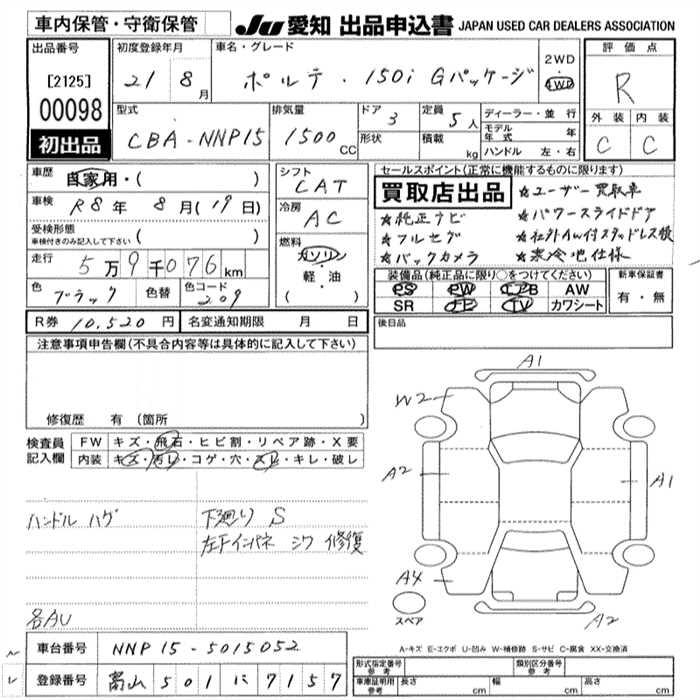 車内保管・守衛保管
JU 愛知 出品申込書 JAPAN USED CAR DEALERS ASSOCIATION
出品番号
[2125]
00098
初出品
初度登録年月
21 8月
車名・グレード
ポルテ・150i Gパッケージ
2WD
4WD
評価点
R
外装 内装
C C
型式
CBA-NNP15
排気量
1500cc
ドア 3
形状
定員 5人
積載 kg
ディーラー・並行
モデル年式 年
ハンドル 左・右
車歴 自家用・( )
車検 R8年 8月(19日)
受検形態
車検付きのみ記入して下さい ( )
走行 5万9千076km
色 ブラック 色替 色コード 209
シフト
CAT
冷房
AC
燃料
ガソリン
軽・油
( )
セールスポイント(正常に機能するものに限ります)
買取店出品
☆ユーザー買取車
☆純正ナビ ☆パワースライドドア
☆フルセグ ☆社外AW付スタッドレス積
☆バックカメラ ☆寒冷地仕様
装備品(純正品に限り○をつけてください)
PS PW エアB AW
SR ナビ TV カワシート
新車保証書
有・無
R券 10,520円 名変通知期限 月 日
後日品
注意事項申告欄(不具合内容等は具体的に記入して下さい)
修復歴 有 (箇所 )
検査員記入欄
FW キズ・飛石・ヒビ割・リペア跡・X要
内装 キズ・汚レ・コゲ・穴・スレ・キレ・破レ
ハンドル ハゲ
下廻り S
左下インパネ シワ 修復
各AU
A1
W2
A2
A1
A4
A2
スペア
A-キズ E-エクボ U-凹み W-補修跡 S-サビ C-腐食 XX-交換済
車台番号 NNP15-5015052
登録番号 富山 501 に 7157
形式指定番号 参考
類別区分番号 参考
車庫証明用 参考 長さ cm 幅 cm 高さ cm